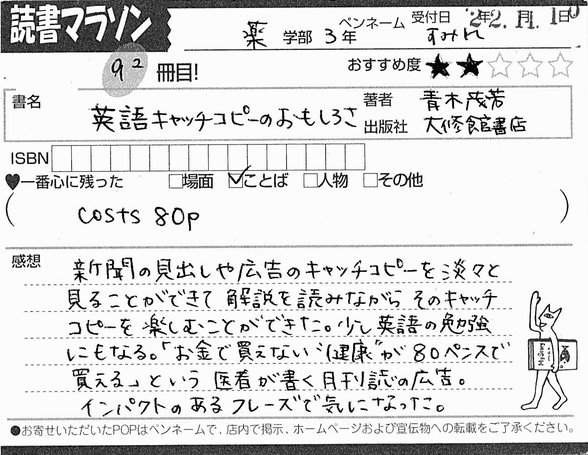 読書マラソン
薬 学部 3年 ペンネーム すみれ 受付日 22.11.10
92 冊目! おすすめ度 ★★☆☆☆
書名 英語キャッチコピーのおもしろさ 著者 青木茂芳
出版社 大修館書店
ISBN
♥一番心に残った □場面 ☑ことば □人物 □その他
( costs 80p )
感想
新聞の見出しや広告のキャッチコピーを淡々と
見ることができて解説を読みながらそのキャッチ
コピーを楽しむことができた。少し英語の勉強
にもなる。「お金で買えない"健康"が80ペンスで
買える」という医者が書く月刊誌の広告。
インパクトのあるフレーズで気になった。
●お寄せいただいたPOPはペンネームで、店内で掲示、ホームページおよび宣伝物への転載をご了承ください。